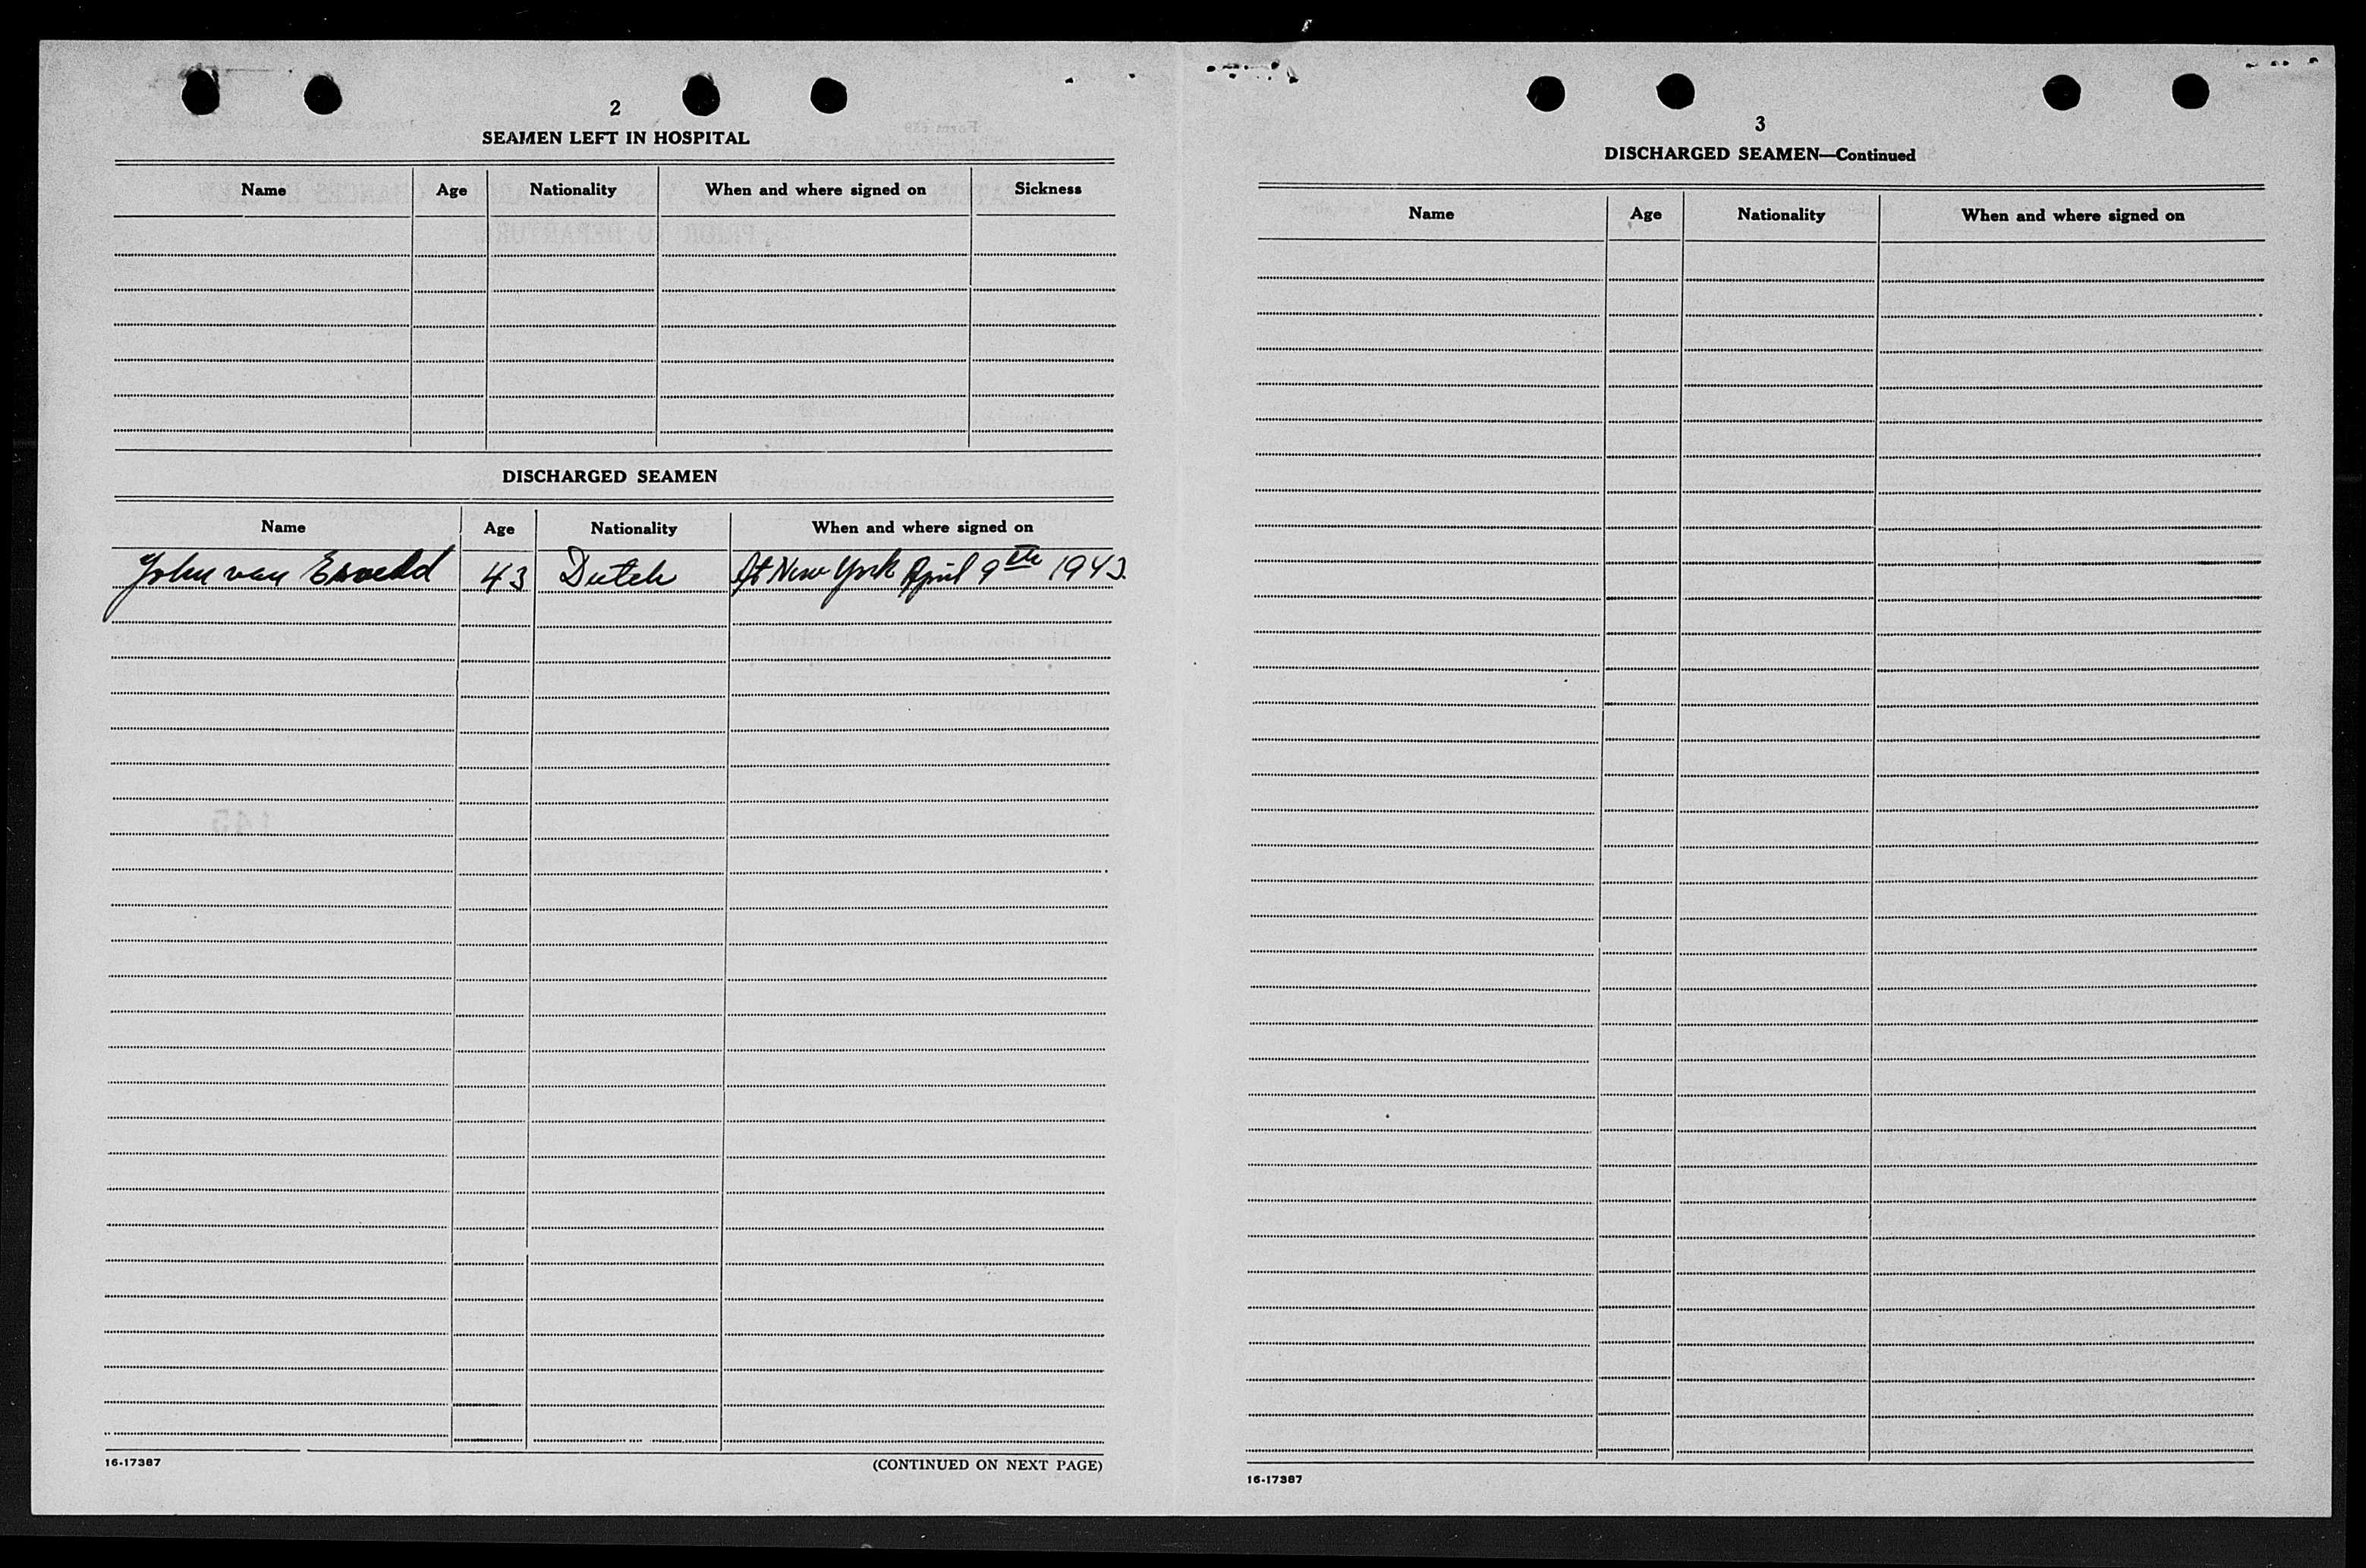 2
SEAMEN LEFT IN HOSPITAL
Name Age Nationality When and where signed on Sickness
DISCHARGED SEAMEN
Name Age Nationality When and where signed on
John van Esveld 43 Dutch At New York April 9th 1943.
16-17387
(CONTINUED ON NEXT PAGE)
3
DISCHARGED SEAMEN—Continued
Name Age Nationality When and where signed on
16-17387